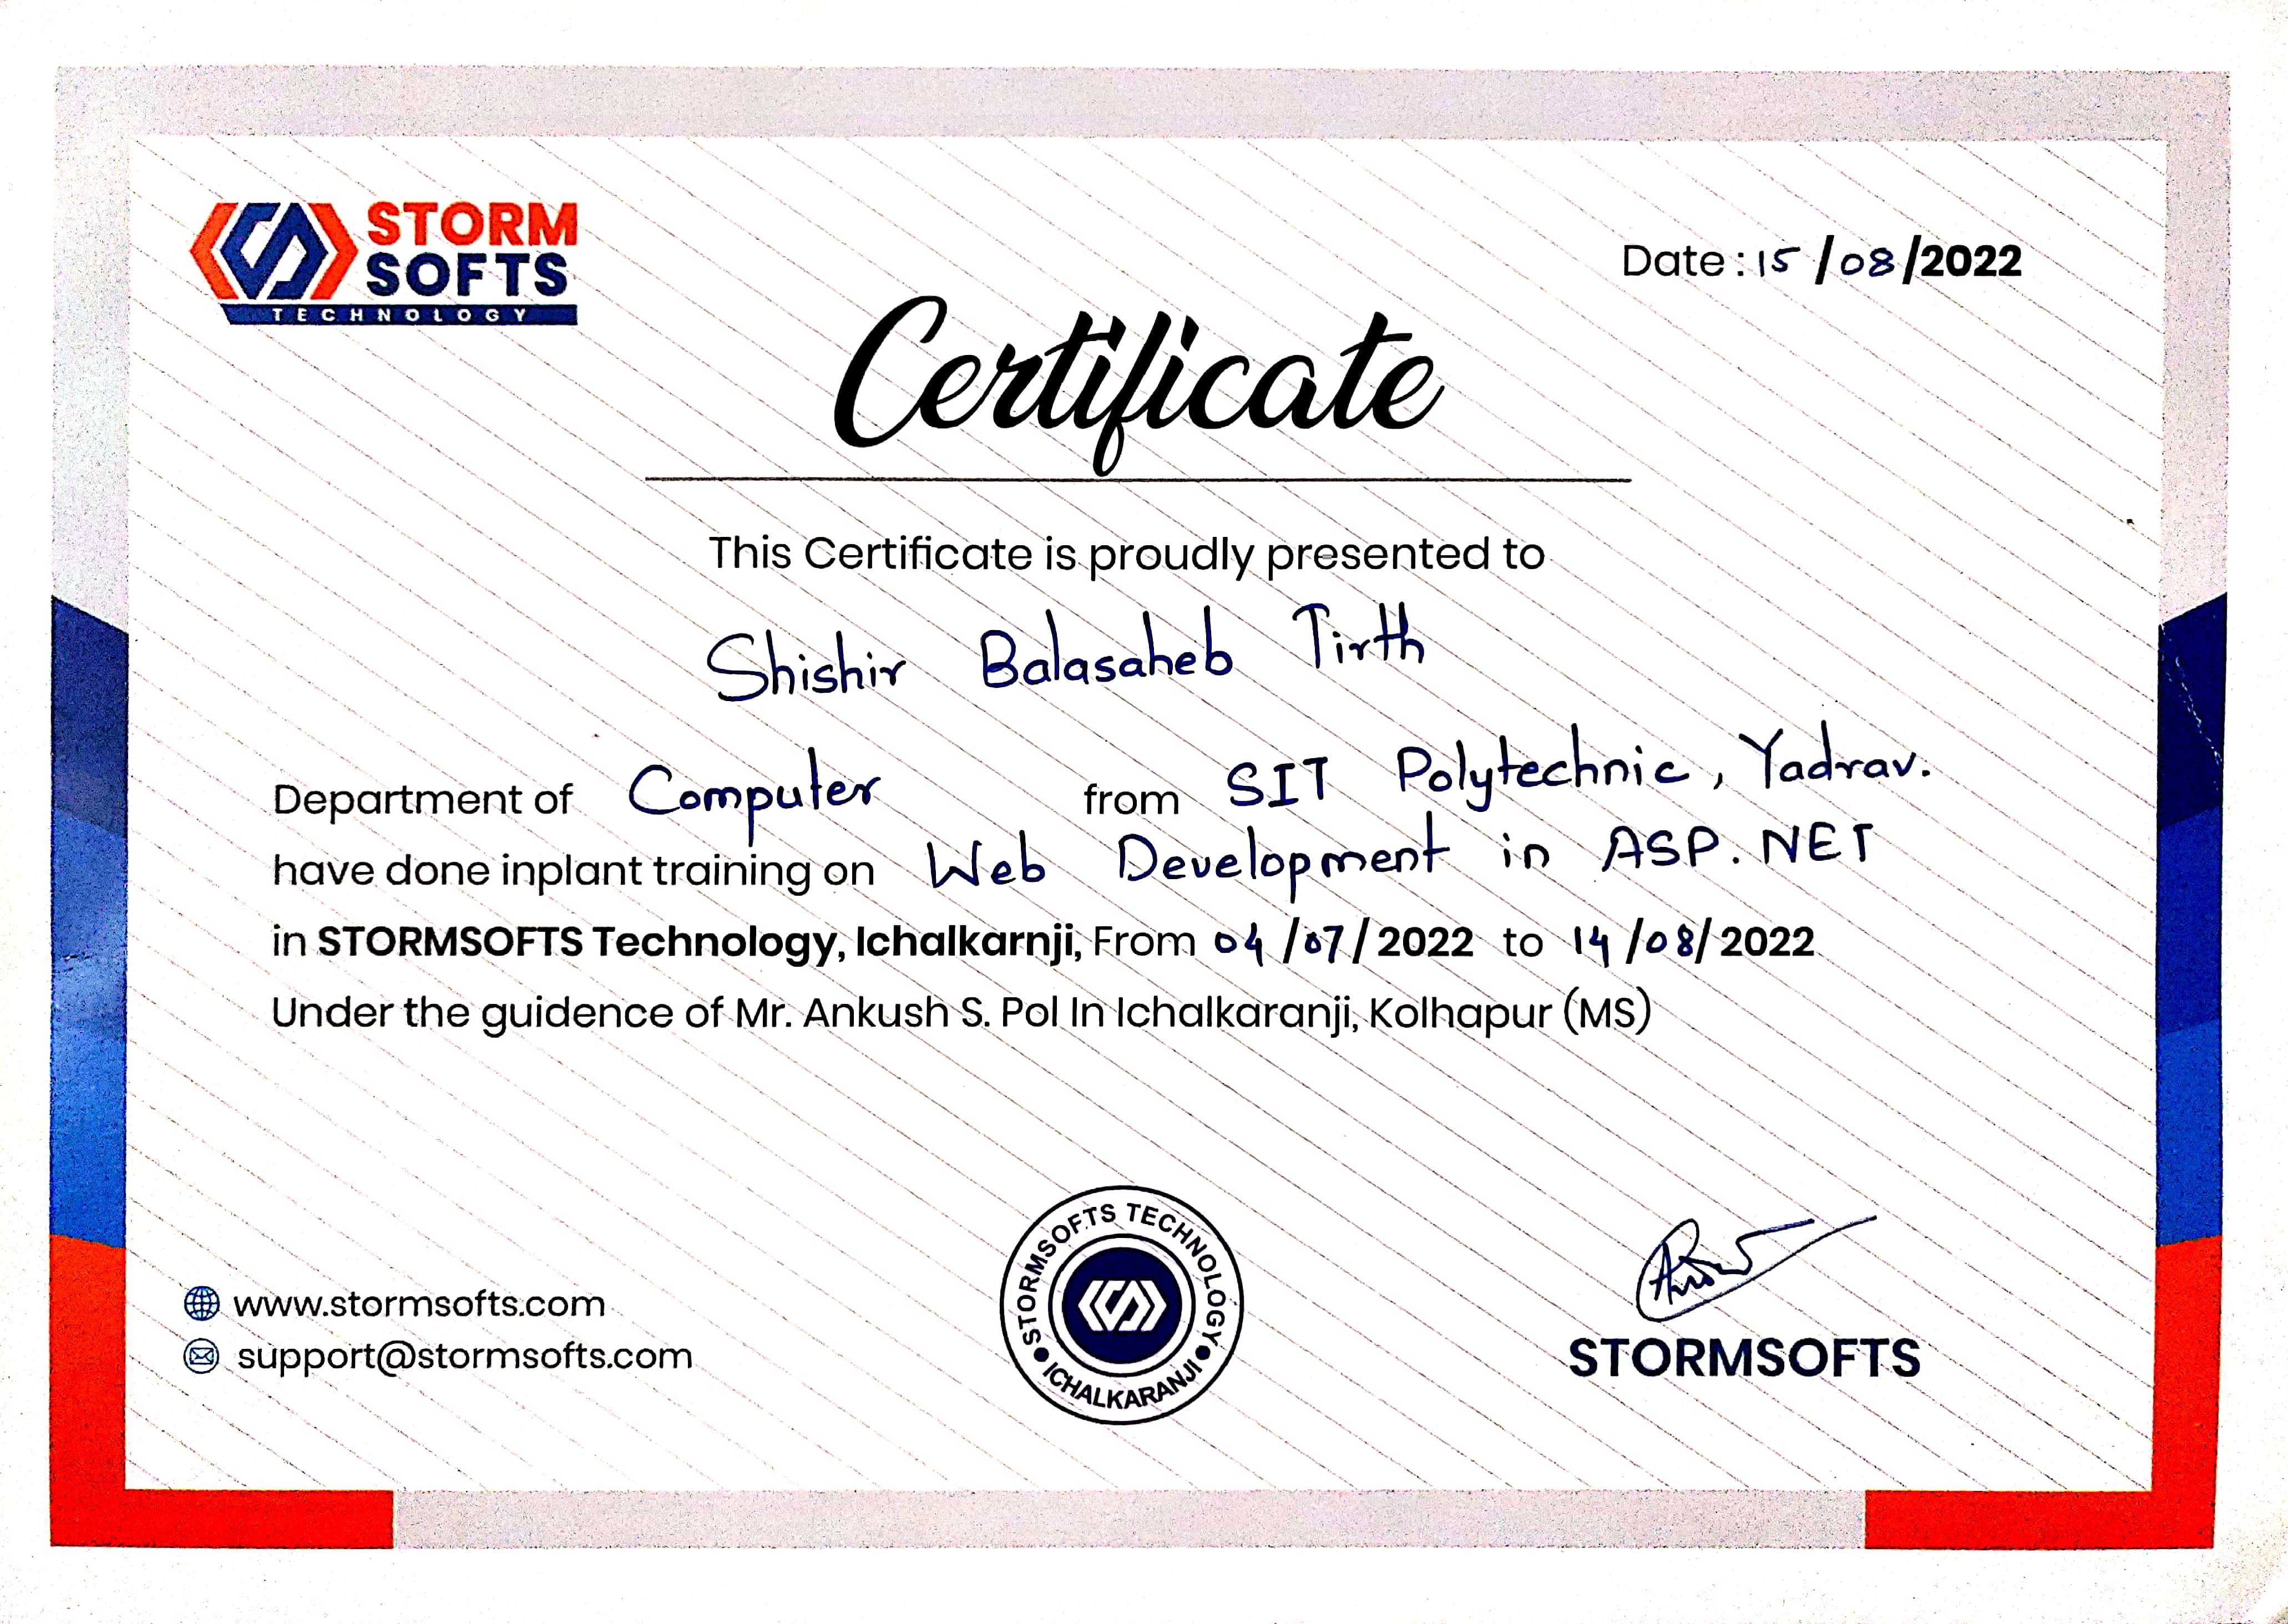 STORM
SOFTS
TECHNOLOGY
Date : 15/08/2022
Certificate
This Certificate is proudly presented to
Shishir Balasaheb Tirth
Department of Computer from SIT Polytechnic, Yadrav.
have done inplant training on Web Development in ASP.NET
in STORMSOFTS Technology, Ichalkarnji, From 04/07/2022 to 14/08/2022
Under the guidence of Mr. Ankush S. Pol In Ichalkaranji, Kolhapur (MS)
www.stormsofts.com
support@stormsofts.com
STORMSOFTS TECHNOLOGY
ICHALKARANJI
STORMSOFTS